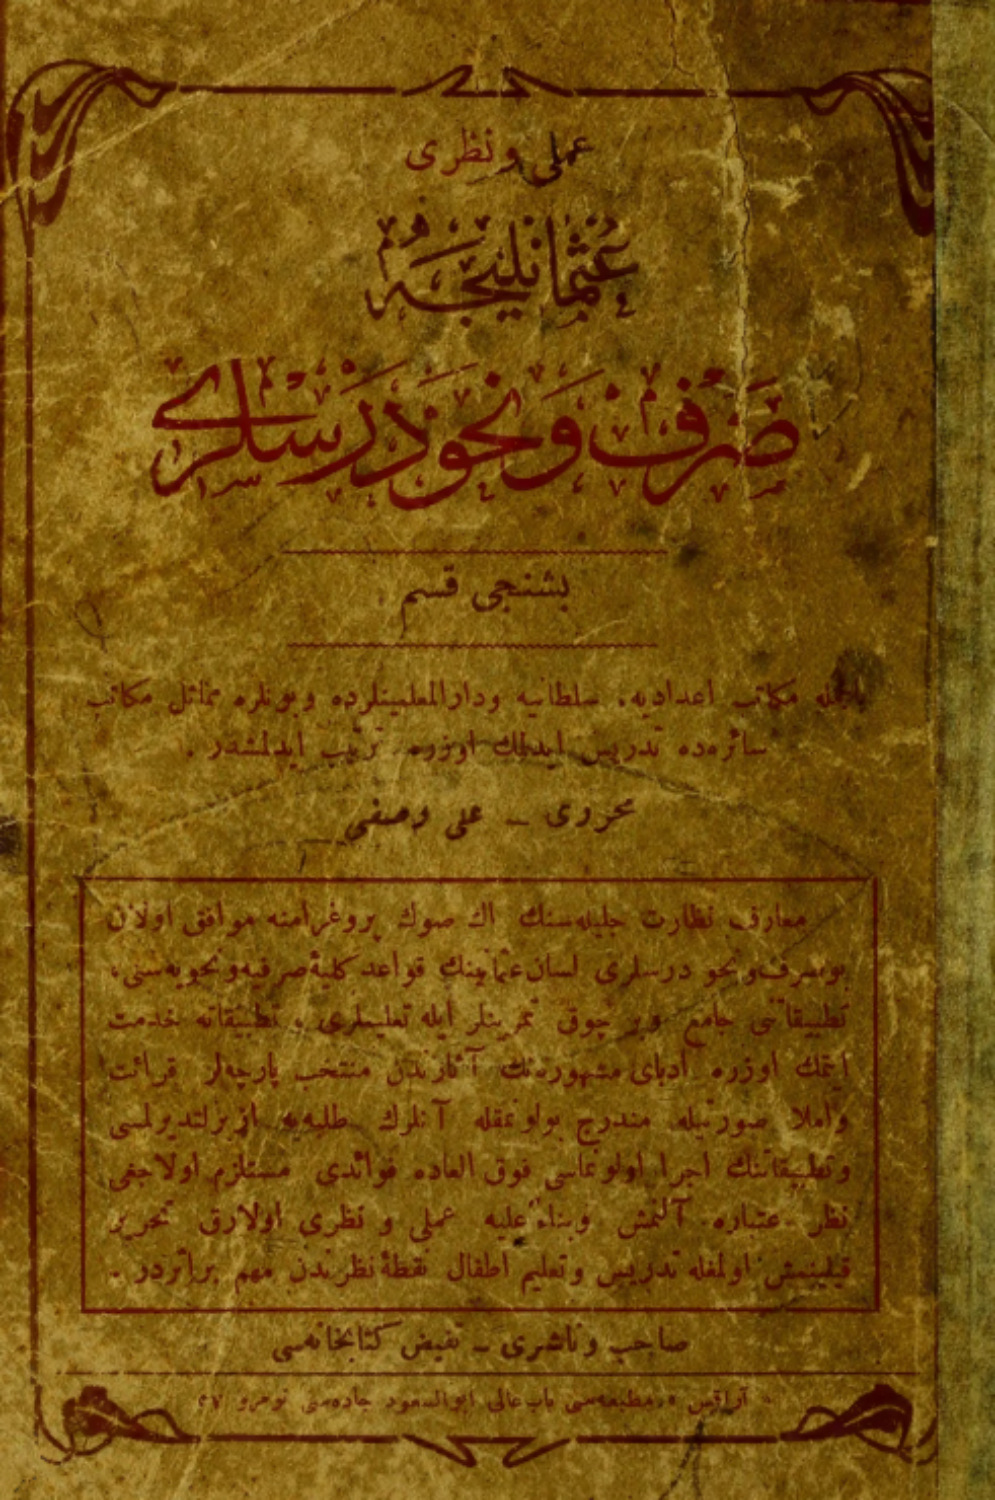 عملی و نظری
عثمانلیجه
صرف و نحو درسلری
بشنجی قسم
بالجمله مكاتب اعدادیه، سلطانیه ودارالمعلمینلرده وبونلره مماثل مكاتب
سائره‌ده تدریس ایدلمك اوزره ترتیب ایدلمشدر .
محرری ــ علی وصفی
معارف نظارت جلیله‌سنك اك صوك پروغرامنه موافق اولان
بوصرف‌ونحو درسلری لسان عثمانینك قواعد كلیهٔ صرفیه‌ونحویه‌سنی،
تطبیقاتنی جامع وبر چوق تمرینلر ایله تعلیملری و تطبیقاته خدمت
ایتمك اوزره ادبای مشهوره‌نك آثارندن منتخب پارچه‌لر قرائت
واملا صورتیله مندرج بولونمقله آنلرك طلبه‌یه ازبرلتدیرلمسی
وتطبیقاتنك اجرا اولونماسی فوق العاده فوائدی مستلزم اولاجغی
نظر اعتباره آلنمش وبناءً علیه عملی و نظری اولارق تحریر
قیلینمش اولمغله تدریس وتعلیم اطفال نقطهٔ نظرندن مهم براثردر .
صاحب و ناشری ــ تفیض كتابخانه‌سی
« آراقس » مطبعه‌سی باب عالی ابوالسعود جاده‌سی نومرو